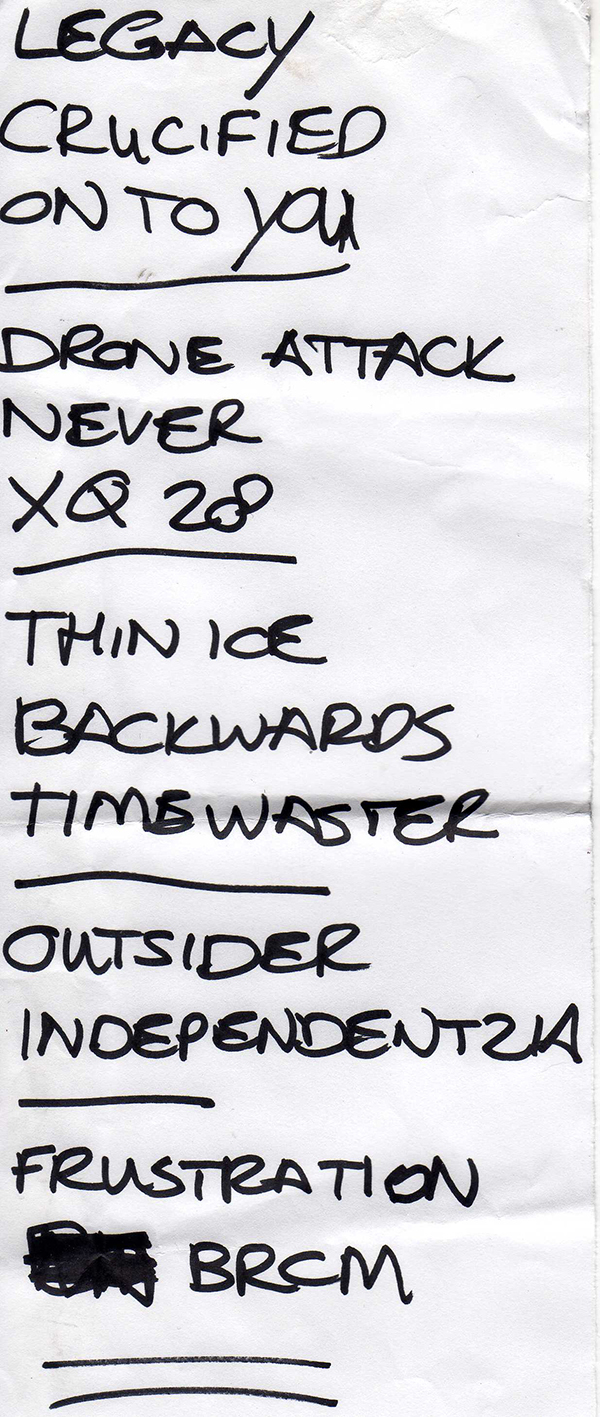 LEGACY
CRUCIFIED
ON TO YOU
DRONE ATTACK
NEVER
XQ 28
THIN ICE
BACKWARDS
TIMEWASTER
OUTSIDER
INDEPENDENTZIA
FRUSTRATION
BRCM